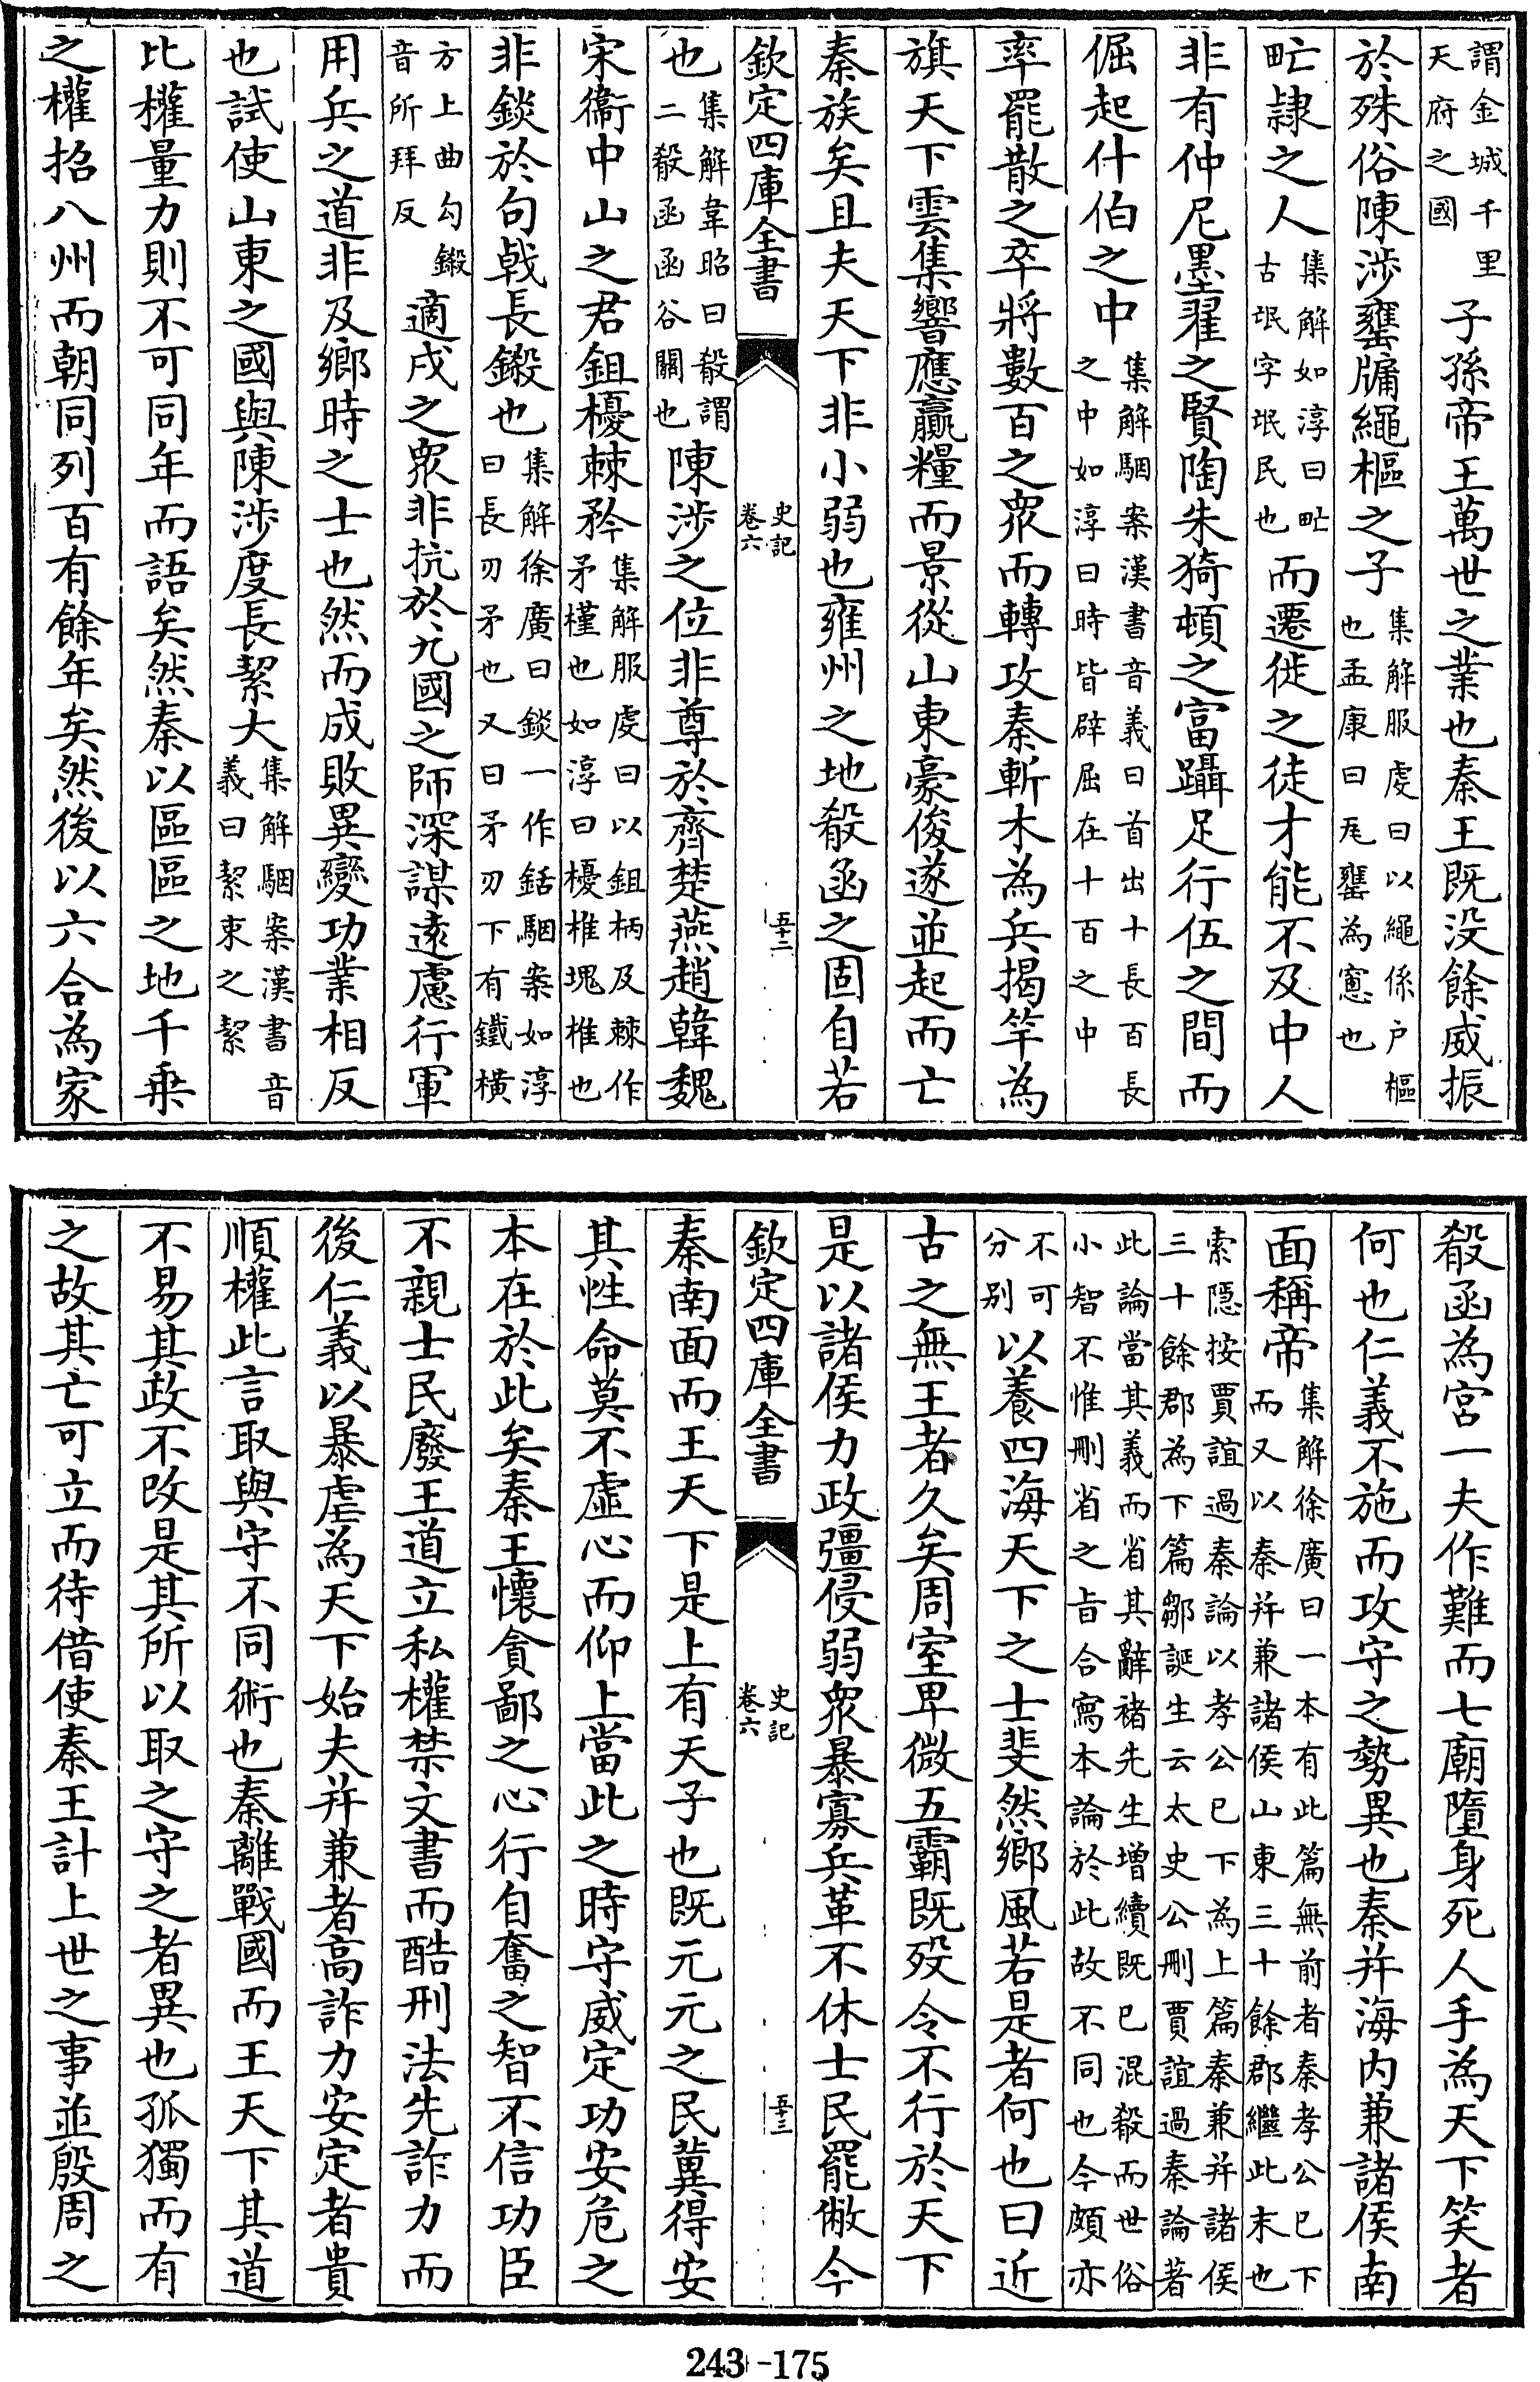 謂金城千里天府之國子孫帝王萬世之業也秦王既没餘威振
於殊俗陳涉罋牖繩樞之子集解服虔曰以繩係户樞也孟康曰瓦罋為窻也
甿隷之人集解如淳曰甿古氓字氓民也而遷徙之徒才能不及中人
非有仲尼墨翟之賢陶朱猗頓之富躡足行伍之間而
倔起什伯之中集解駰案漢書音義曰首出十長百長之中如淳曰時皆辟屈在十百之中
率罷散之卒將數百之衆而轉攻秦斬木為兵揭竿為
旗天下雲集響應贏糧而景從山東豪俊遂並起而亡
秦族矣且夫天下非小弱也雍州之地殽函之固自若
欽定四庫全書 史記卷六 五十二
也集解韋昭曰殽謂二殽函函谷關也陳涉之位非尊於齊楚燕趙韓魏
宋衞中山之君鉏櫌棘矜集解服虔曰以鉏柄及棘作矛槿也如淳曰櫌椎塊椎也
非錟於句戟長鎩也集解徐廣曰錟一作銛駰案如淳曰長刃矛也又曰矛刃下有鐵横
方上曲勾鎩音所拜反適戍之衆非抗於九國之師深謀逺慮行軍
用兵之道非及鄉時之士也然而成敗異變功業相反
也試使山東之國與陳涉度長絜大集解駰案漢書音義曰絜束之絜
比權量力則不可同年而語矣然秦以區區之地千乗
之權招八州而朝同列百有餘年矣然後以六合為家
殽函為宫一夫作難而七廟墮身死人手為天下笑者
何也仁義不施而攻守之勢異也秦并海内兼諸侯南
面稱帝集解徐廣曰一本有此篇無前者秦孝公已下而又以秦并兼諸侯山東三十餘郡繼此末也
索隠按賈誼過秦論以孝公已下為上篇秦兼并諸侯三十餘郡為下篇鄒誕生云太史公刪賈誼過秦論著
此論當其義而省其辭褚先生增續既已混殽而世俗小智不惟刪省之旨合寫本論於此故不同也今頗亦
不可分别以養四海天下之士斐然鄉風若是者何也曰近
古之無王者久矣周室卑微五霸既殁令不行於天下
是以諸侯力政彊侵弱衆暴寡兵革不休士民罷敝今
欽定四庫全書 史記卷六 五十三
秦南面而王天下是上有天子也既元元之民冀得安
其性命莫不虚心而仰上當此之時守威定功安危之
本在於此矣秦王懷貪鄙之心行自奮之智不信功臣
不親士民廢王道立私權禁文書而酷刑法先詐力而
後仁義以暴虐為天下始夫并兼者高詐力安定者貴
順權此言取與守不同術也秦離戰國而王天下其道
不易其政不改是其所以取之守之者異也孤獨而有
之故其亡可立而待借使秦王計上世之事並殷周之
243-175